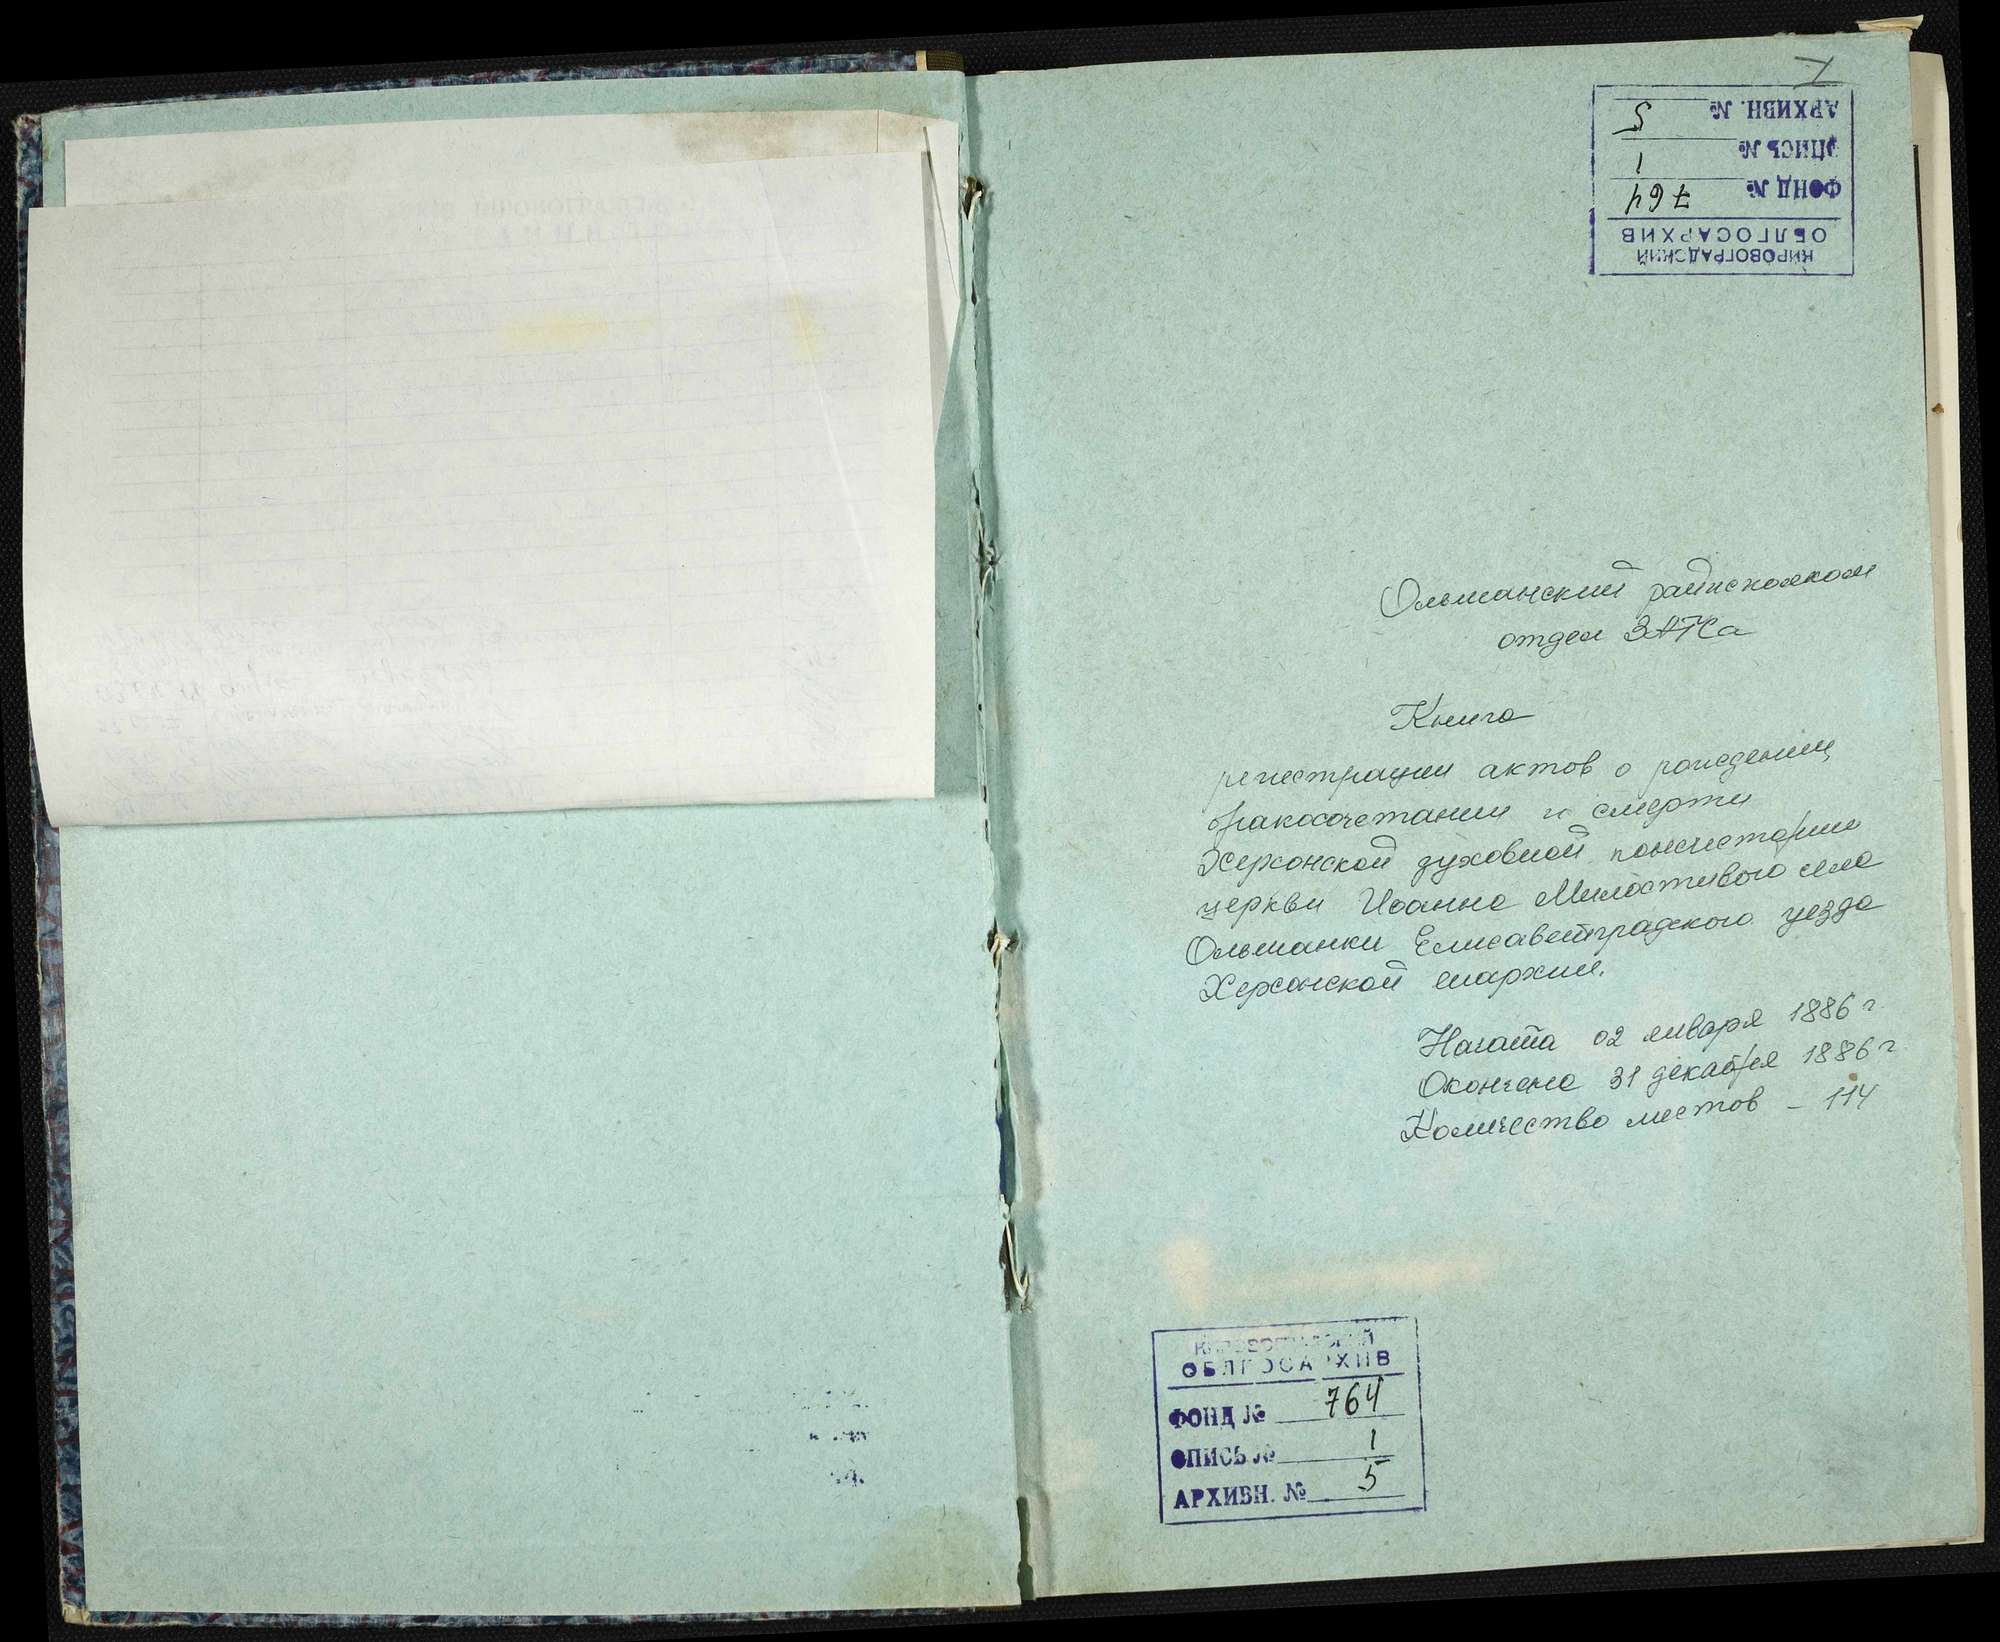 I
КИРОВОГРАДСКИЙ
ОБЛГОСАРХИВ
ФОНД № 764
ОПИСЬ № 1
АРХИВН. № 5
Ольшанский райисполком
отдел ЗАГСа
Книга
регистрации актов о рождении,
бракосочетании и смерти
Херсонской духовной консистории
церкви Иоанна Милостивого села
Ольшанки Елисаветградского уезда
Херсонской епархии.
Начата 02 января 1886 г.
Окончена 31 декабря 1886 г.
Количество листов - 114
КИРОВОГРАДСКИЙ
ОБЛГОСАРХИВ
ФОНД № 764
ОПИСЬ № 1
АРХИВН. № 5